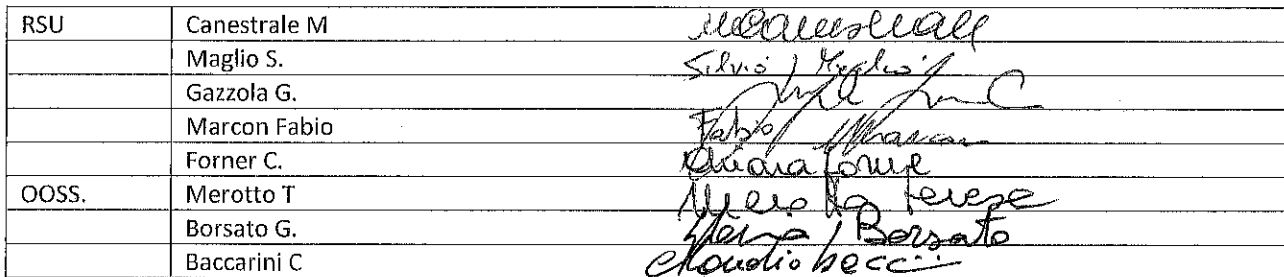 RSU Canestrale M
Maglio S. Silvio Maglio
Gazzola G.
Marcon Fabio Fabio Marcon
Forner C. Chiara Forner
OOSS. Merotto T Merotto Teresa
Borsato G. Borsato
Baccarini C Claudio